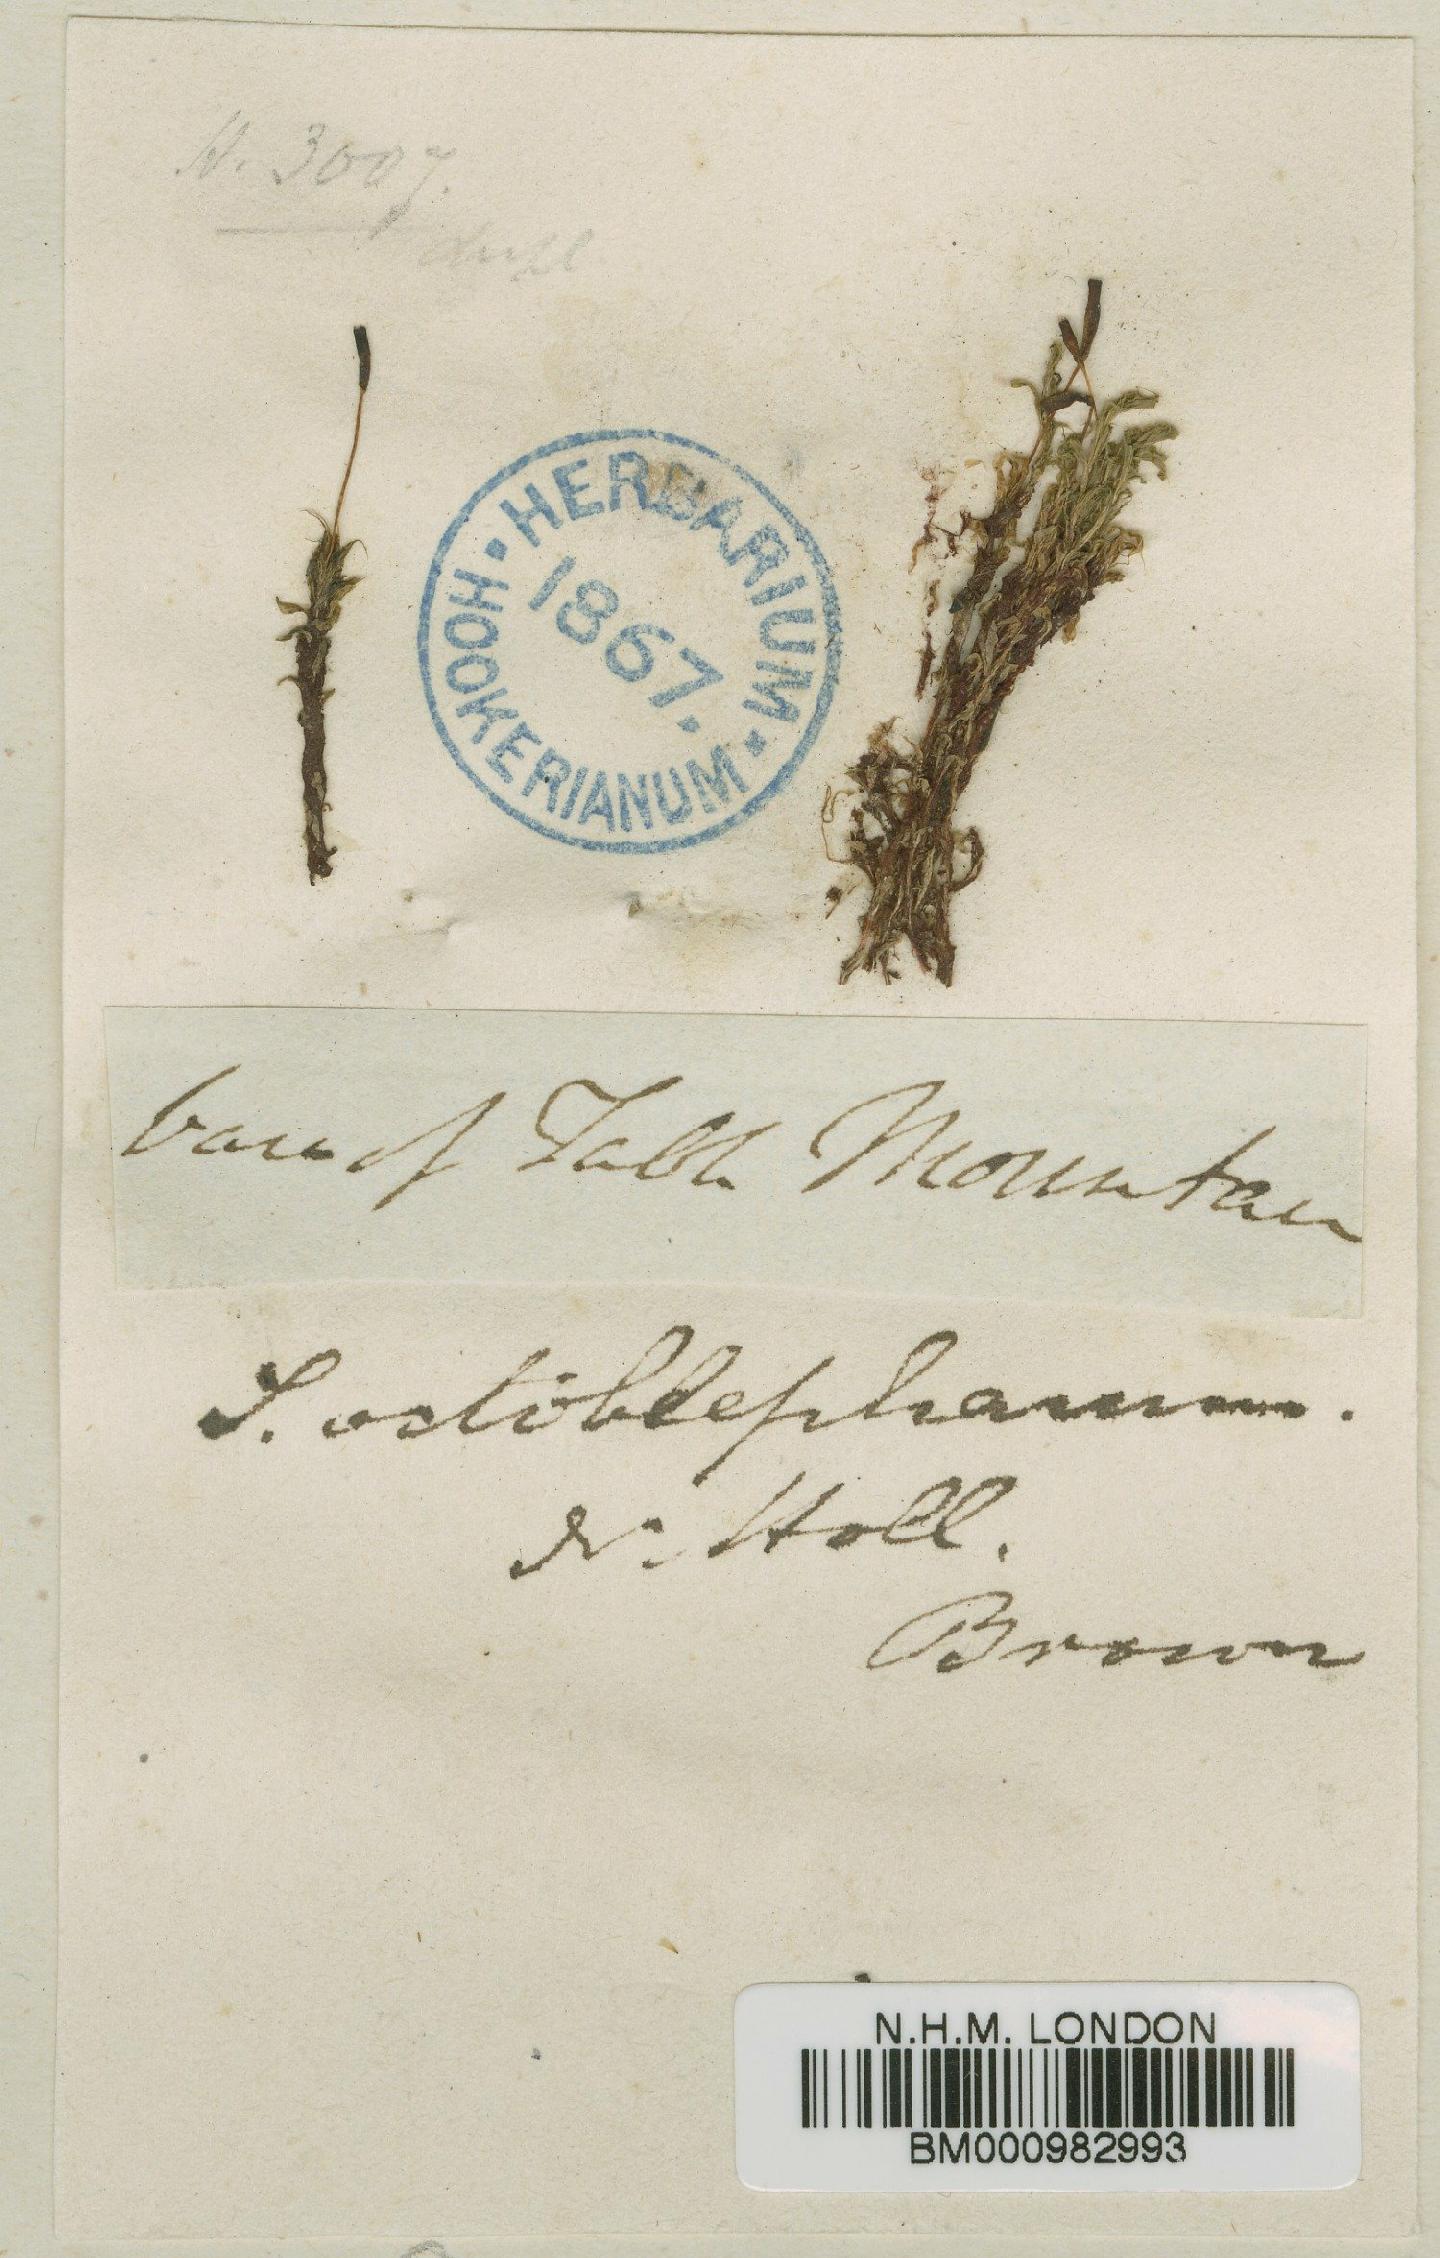 H. 3007.
dupl
HERBARIUM HOOKERIANUM
1867.
base of Table Mountain
S. octoblepharum.
N. Holl.
Brown
N.H.M. LONDON
BM000982993